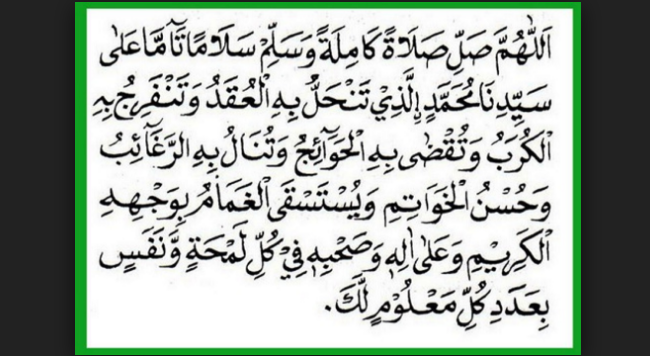 اَللّٰهُمَّ صَلِّ صَلَاةً كَامِلَةً وَسَلِّمْ سَلَامًا تَآمًّا عَلٰى
سَيِّدِنَا مُحَمَّدِ ࣙالَّذِيْ تَنْحَلُّ بِهِ الْعُقَدُ وَتَنْفَرِجُ بِهِ
الْكُرَبُ وَتُقْضٰى بِهِ الْحَوَآئِجُ وَتُنَالُ بِهِ الرَّغَآئِبُ
وَحُسْنُ الْخَوَاتِمِ وَيُسْتَسْقَى الْغَمَامُ بِوَجْهِهِ
الْكَرِيْمِ وَعَلٰى اٰلِهٖ وَصَحْبِهٖ فِيْ كُلِّ لَمْحَةٍ وَّنَفَسٍ
بِعَدَدِ كُلِّ مَعْلُوْمٍ لَّكَ.